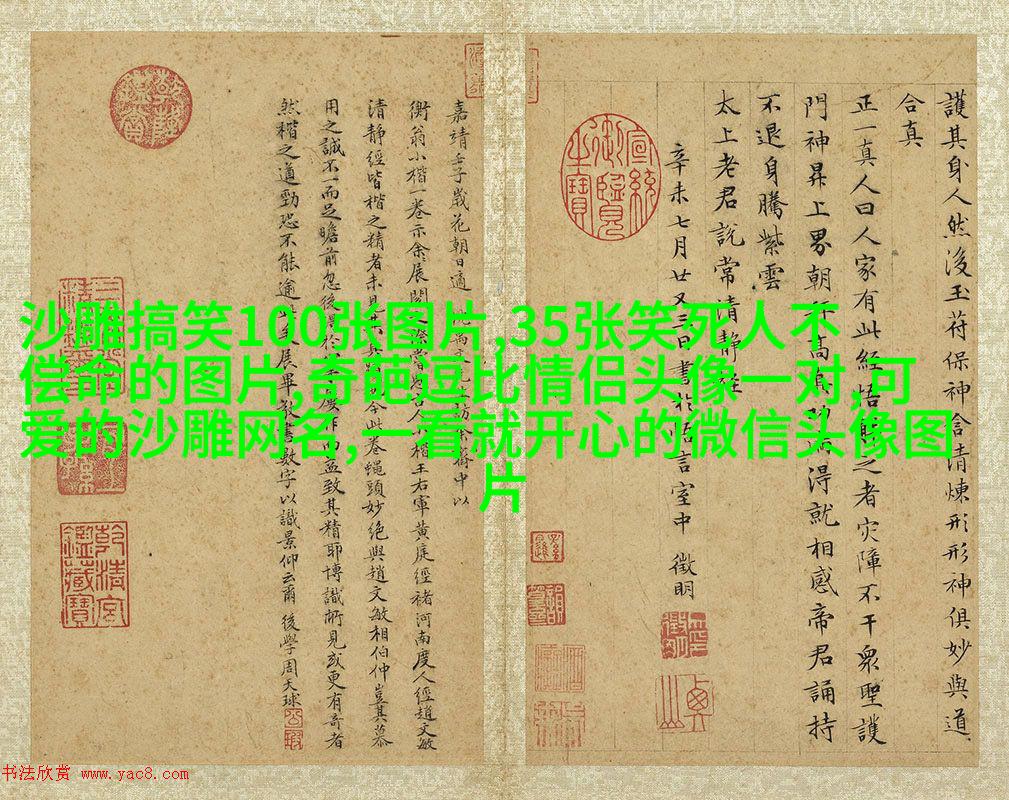 沙雕搞笑100张图片,35张笑死人不
偿命的图片,奇葩逗比情侣头像一对,可
爱的沙雕网名,一看就开心的微信头像图
片
護其身人然後玉苻保神金液煉形形神俱妙與道
合真
正一真人曰人家有此經悟解之者灾障不干眾聖護
門神昇上界朝拜高真功滿得就相感帝君誦持
不退身騰紫雲
太上老君說常清靜經
辛未七月廿又三日書於悟言室中 徵明
宣統御覽之寶
嘉靖壬子歲花朝日適
衡翁小楷一卷示余展閱 古人小楷王右軍黃庭經褚河南度人經趙文敏
清靜經皆楷之精者未見 今此卷蠅頭妙絕與趙文敏相伯仲豈其慕
用之誠不一而足瞻前忽後 而益致其精耶博識所見或更有奇者
然楷之遒勁恐不能逾 展畢敬書數字以識景仰云爾 後學周天球
乾清宮鑑藏寶
书法欣赏 www.yac8.com